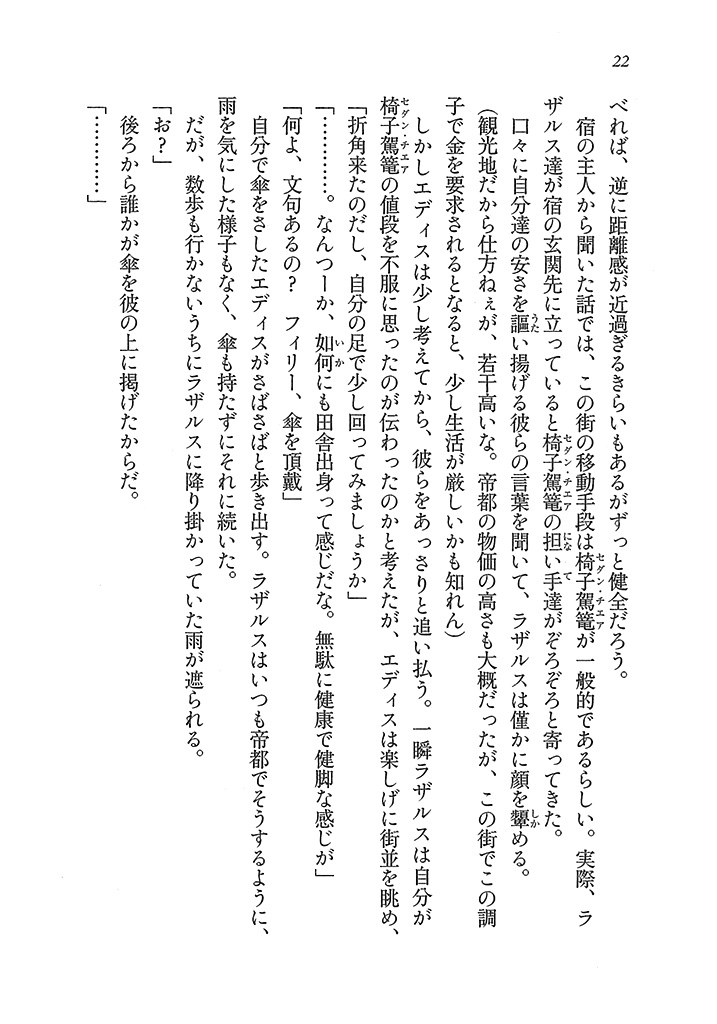 22
べれば、逆に距離感が近過ぎるきらいもあるがずっと健全だろう。
　宿の主人から聞いた話では、この街の移動手段は椅子駕篭が一般的であるらしい。実際、ラ
セダン・チエア
ザルス達が宿の玄関先に立っていると椅子駕篭の担い手達がぞろぞろと寄ってきた。
セダン・チエア
にな
て
　口々に自分達の安さを謳い揚げる彼らの言葉を聞いて、ラザルスは僅かに顔を顰める。
うた
しか
（観光地だから仕方ねぇが、若干高いな。帝都の物価の高さも大概だったが、この街でこの調
子で金を要求されるとなると、少し生活が厳しいかも知れん）
　しかしエディスは少し考えてから、彼らをあっさりと追い払う。一瞬ラザルスは自分が
椅子駕篭の値段を不服に思ったのが伝わったのかと考えたが、エディスは楽しげに街並を眺め、
セダン・チエア
「折角来たのだし、自分の足で少し回ってみましょうか」
「…………。なんつーか、如何にも田舎出身って感じだな。無駄に健康で健脚な感じが」
いか
「何よ、文句あるの？　フィリー、傘を頂戴」
　自分で傘をさしたエディスがさばさばと歩き出す。ラザルスはいつも帝都でそうするように、
雨を気にした様子もなく、傘も持たずにそれに続いた。
　だが、数歩も行かないうちにラザルスに降り掛かっていた雨が遮られる。
「お？」
　後ろから誰かが傘を彼の上に掲げたからだ。
「…………」